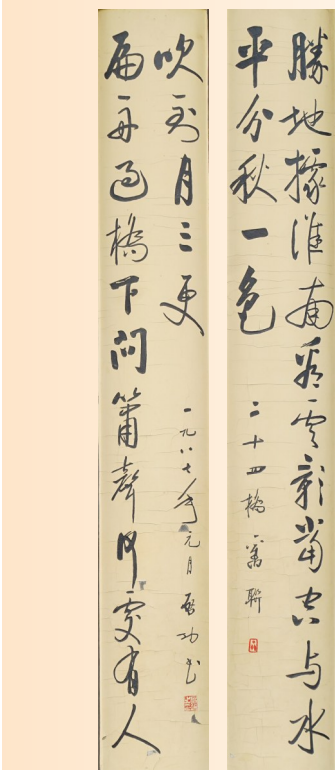 勝地據淮南看雲影當空与水
平分秋一色 二十四橋舊聯
扁舟過橋下問簫聲何處有人
吹到月三更 一九八七年元月 启功书